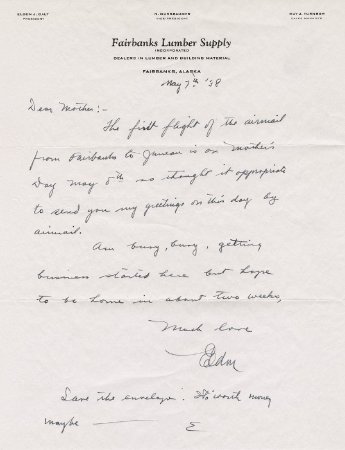 ELDEN J. DALY
PRESIDENT
VICE PRESIDENT
RAY J. TURNBOW
SALES MANAGER
Fairbanks Lumber Supply
INCORPORATED
DEALERS IN LUMBER AND BUILDING MATERIAL
FAIRBANKS, ALASKA
May 7th '38
Dear Mother:-
The first flight of the airmail
from Fairbanks to Juneau is on Mother's
Day May 8th so thought it appropriate
to send you my greetings on this day by
airmail.
Am busy, busy, getting
business started here but hope
to be home in about two weeks,
Much love
Save the envelope. It's worth money
maybe — E